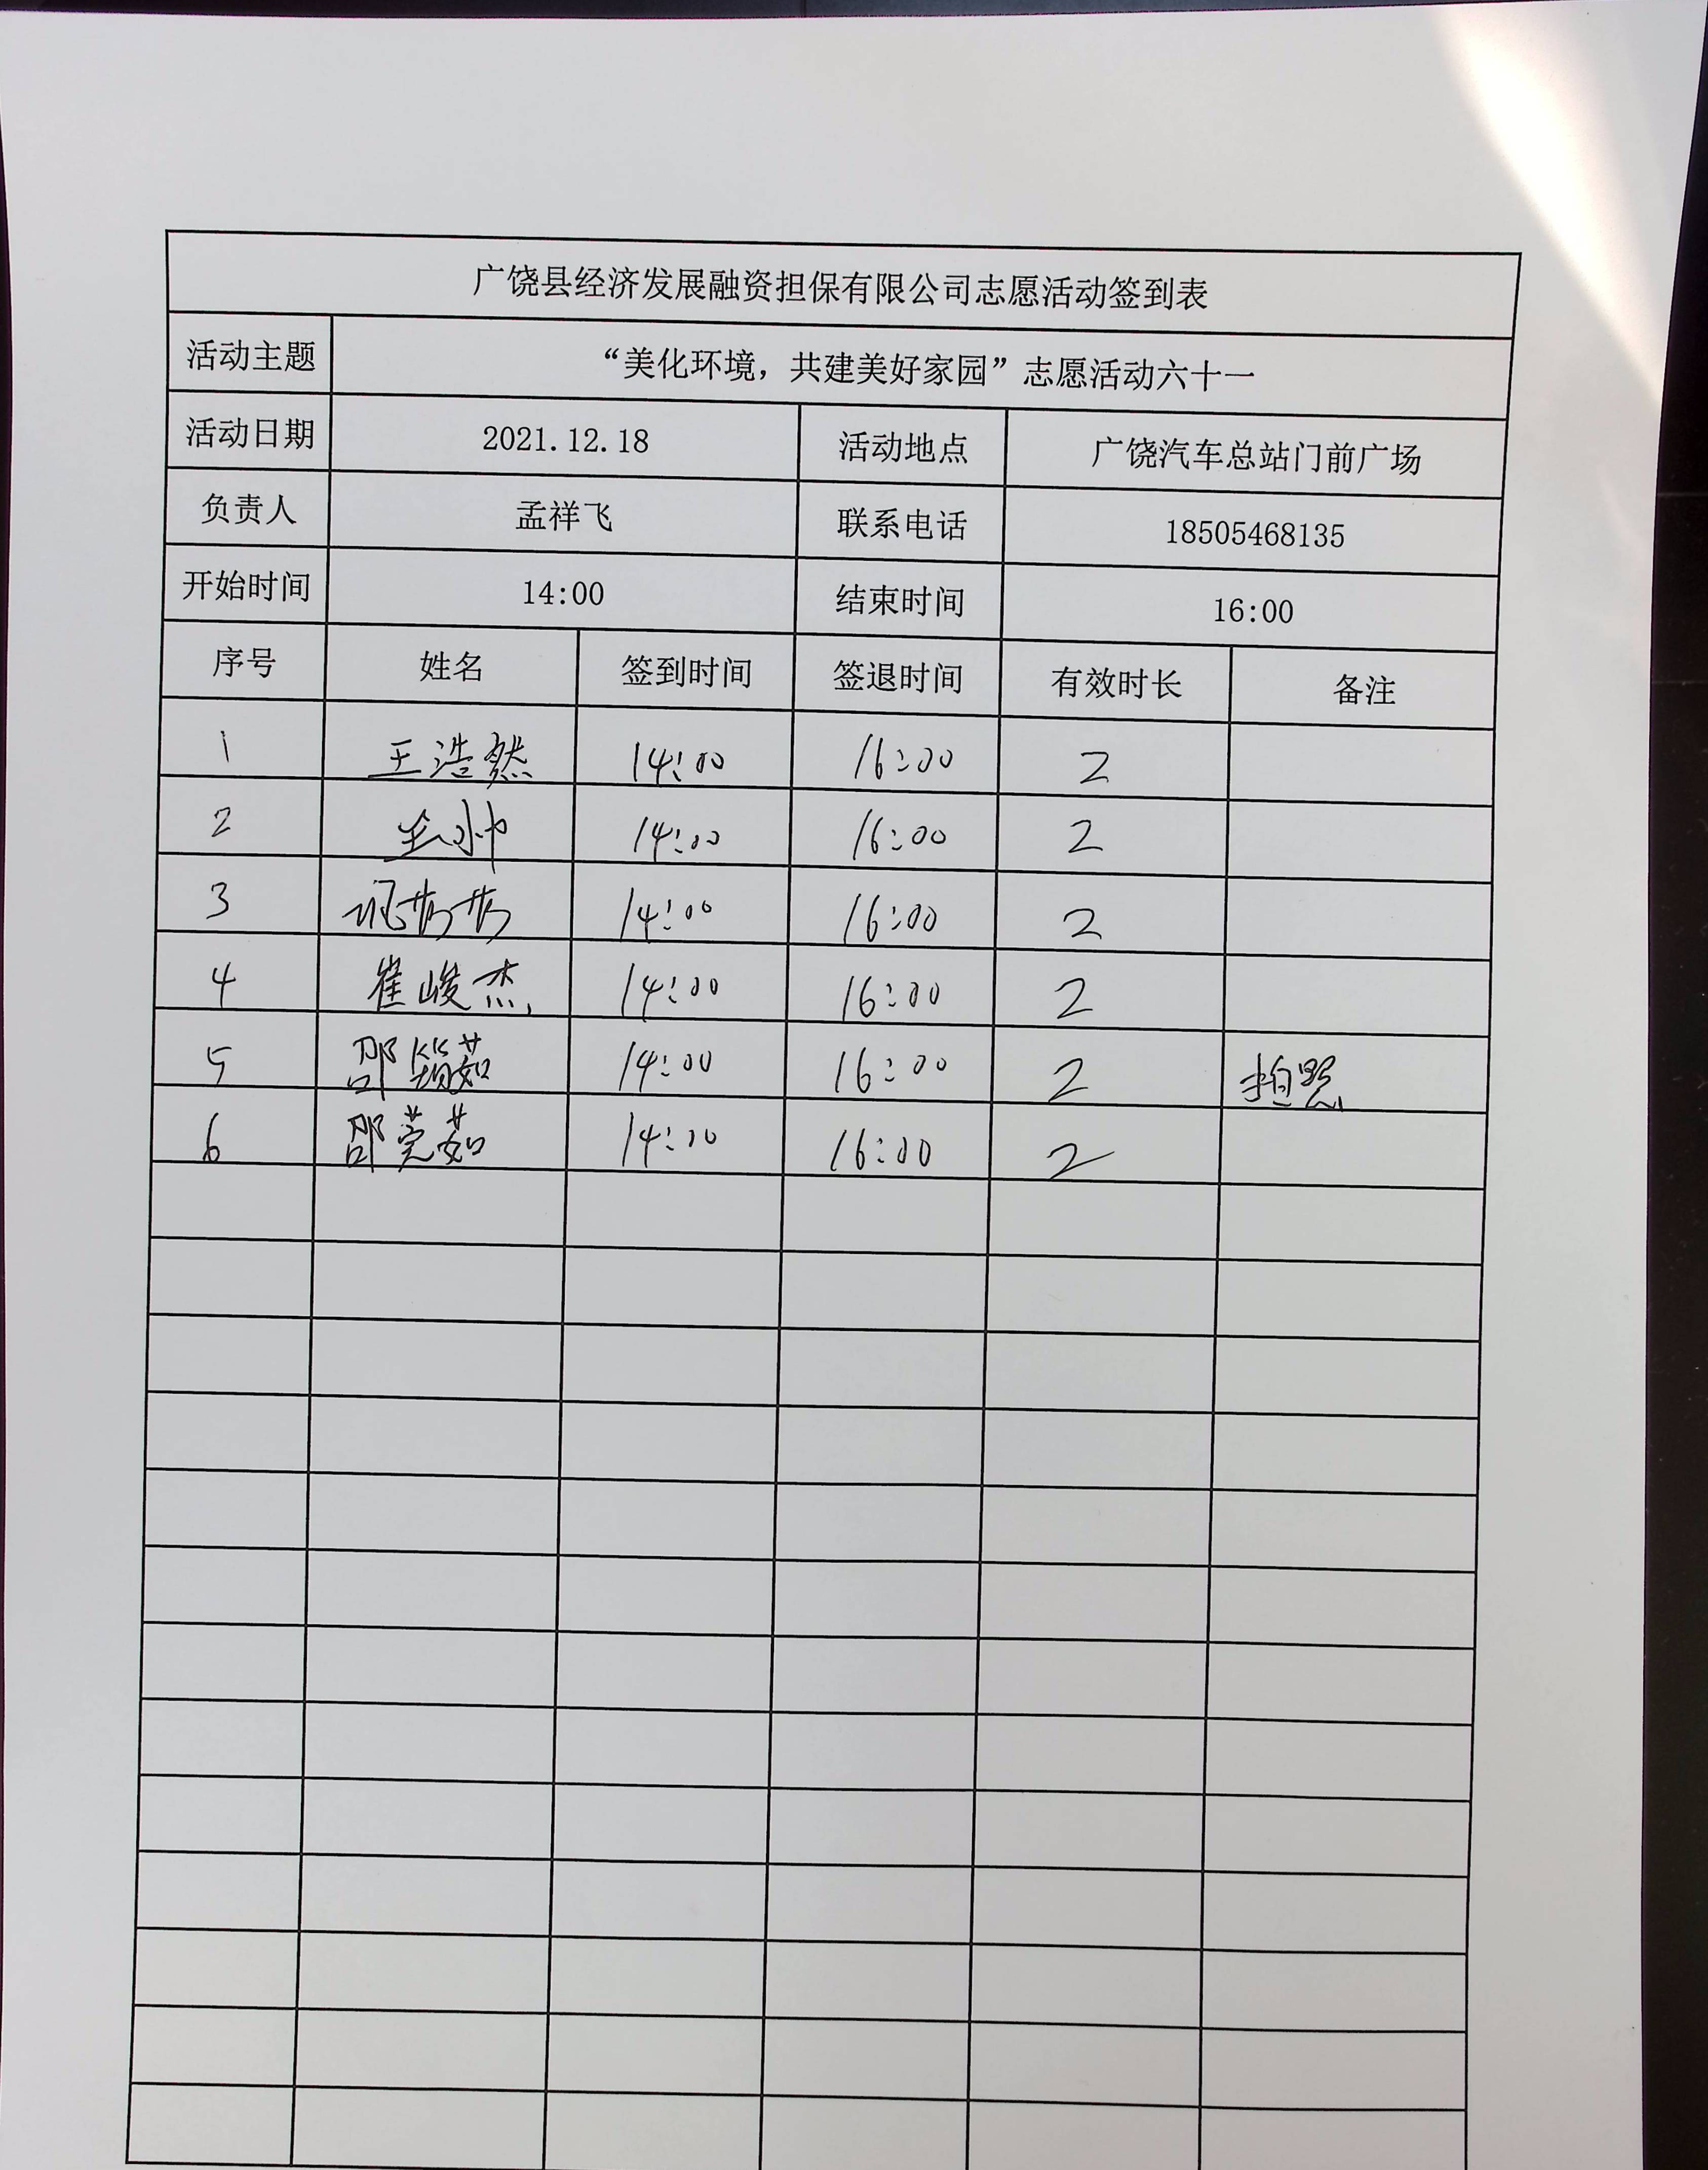 广饶县经济发展融资担保有限公司志愿活动签到表
活动主题 “美化环境，共建美好家园”志愿活动六十一
活动日期 2021.12.18 活动地点 广饶汽车总站门前广场
负责人 孟祥飞 联系电话 18505468135
开始时间 14:00 结束时间 16:00
序号 姓名 签到时间 签退时间 有效时长 备注
1 王浩然 14:00 16:00 2
2 14:00 16:00 2
3 14:00 16:00 2
4 崔峻杰 14:00 16:00 2
5 邵筠茹 14:00 16:00 2 拍照
6 邵莞茹 14:00 16:00 2